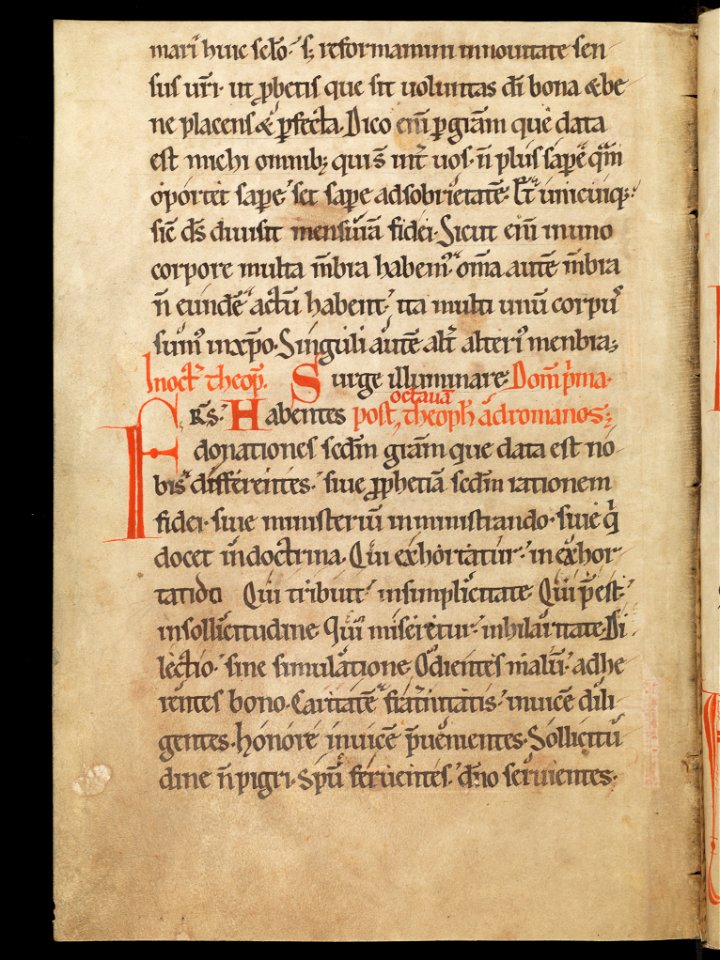 mari huic sclo· s; reformamini innouitate sen
sus uri· ut ꝓbetis que sit uoluntas di bona &be
ne placens& ꝑfecta. Dico eni ꝑ grãm que data
est michi omnib; qui s̄ int̄ uos· n̄ plus saꝑe q̃m
oportet saꝑe· set saꝑe adsobrietatē· Et unicuiq;·
sic̄ ds̄ diuisit mensurā fidei· Sicut eni inuno
corpore multa m̄bra habem᾽· om̄a autē m̄bra
n̄ eundē actū habent· ita multi unū corpus
sum᾽ inxp̄o· Singuli autē alt̄ alteri᾽ menbra;
Inoct̄ theoph̄. Surge illuminare Dom̄ p̄ma·
octauā
FR̄S· Habentes post theoph̄ adromanos;
donationes scdm̄ grām que data est no
bis differentes· siue ꝓphetiā scdm̄ rationem
fidei· siue ministeriū inministrando· siue q̇
docet indoctrina. Qui exhortatur· inexhor
tatido Qui tribuit· insimplicitate Qui p̄est·
insollicitudine Qui miseretur· inhilaritate· Di
lectio· sine simulatione Odientes malū· adhe
rentes bono· Caritatē frat̄nitatis· inuicē dili
gentes· honorē inuicē p̄uenientes· Sollicitu
dine n̄ pigri· spū feruentes· dn̄o seruientes·